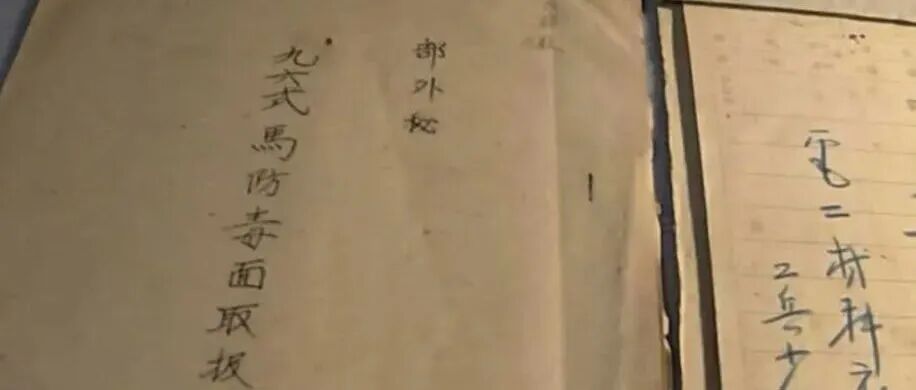 電二材料
工兵少
部外秘
九六式馬防毒面取扱